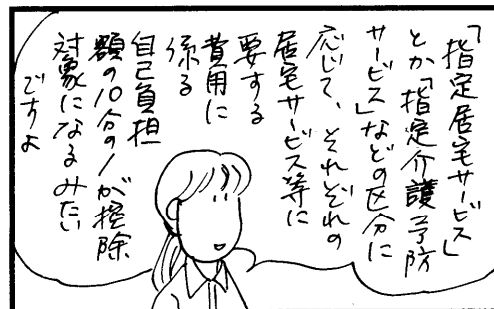 「指定居宅サービス」
とか「指定介護予防
サービス」などの区分に
応じて、それぞれの
居宅サービス等に
要する
費用に
係る
自己負担
額の10分の1が控除
対象になるみたい
ですよ